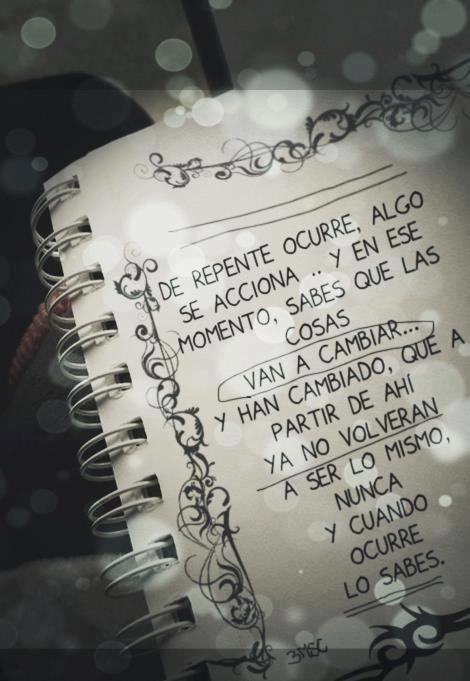 DE REPENTE OCURRE, ALGO
SE ACCIONA .. Y EN ESE
MOMENTO, SABES QUE LAS
COSAS
VAN A CAMBIAR...
Y HAN CAMBIADO, QUE A
PARTIR DE AHÍ
YA NO VOLVERAN
A SER LO MISMO,
NUNCA
Y CUANDO
OCURRE
LO SABES.
3MSC